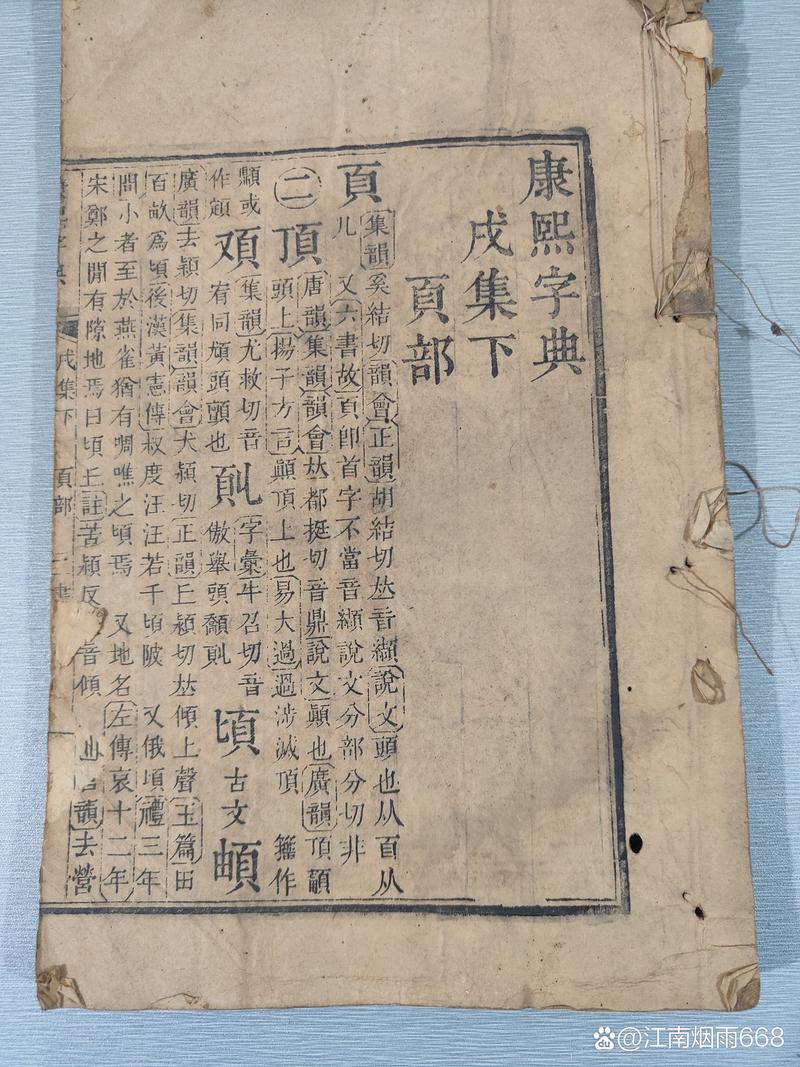 康熙字典
戌集下
頁部
頁
集韻奚結切韻會正韻胡結切𠀤音纈說文頭也从𦣻从
儿 又六書故頁卽首字不當音纈說文分部分切非
㊁頂
唐韻集韻韻會𠀤都挺切音鼎說文顚也廣韻頂𩕳
頭上揚子方言顚頂上也易大過過涉滅頂 籀作
或
作顁
集韻尤救切音
宥同頄頭顫也
字彙牛召切音
傲舉頭顤
頃 古文
廣韻去潁切集韻韻會犬潁切正韻丘潁切𠀤傾上聲玉篇田
百畝爲頃後漢黃憲傳叔度汪汪若千頃陂 又俄頃禮三年
問小者至於燕雀猶有啁噍之頃焉 又地名左傳哀十二年
宋鄭之閒有隙地焉曰頃丘註苦潁反 音傾 韻去營
字典 戌集下 頁部
Baidu @江南烟雨668